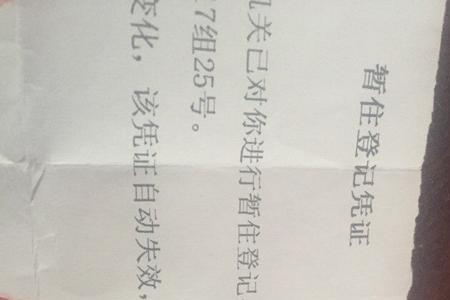 暂住登记凭证
机关已对你进行暂住登记
7组25号。
变化，该凭证自动失效，